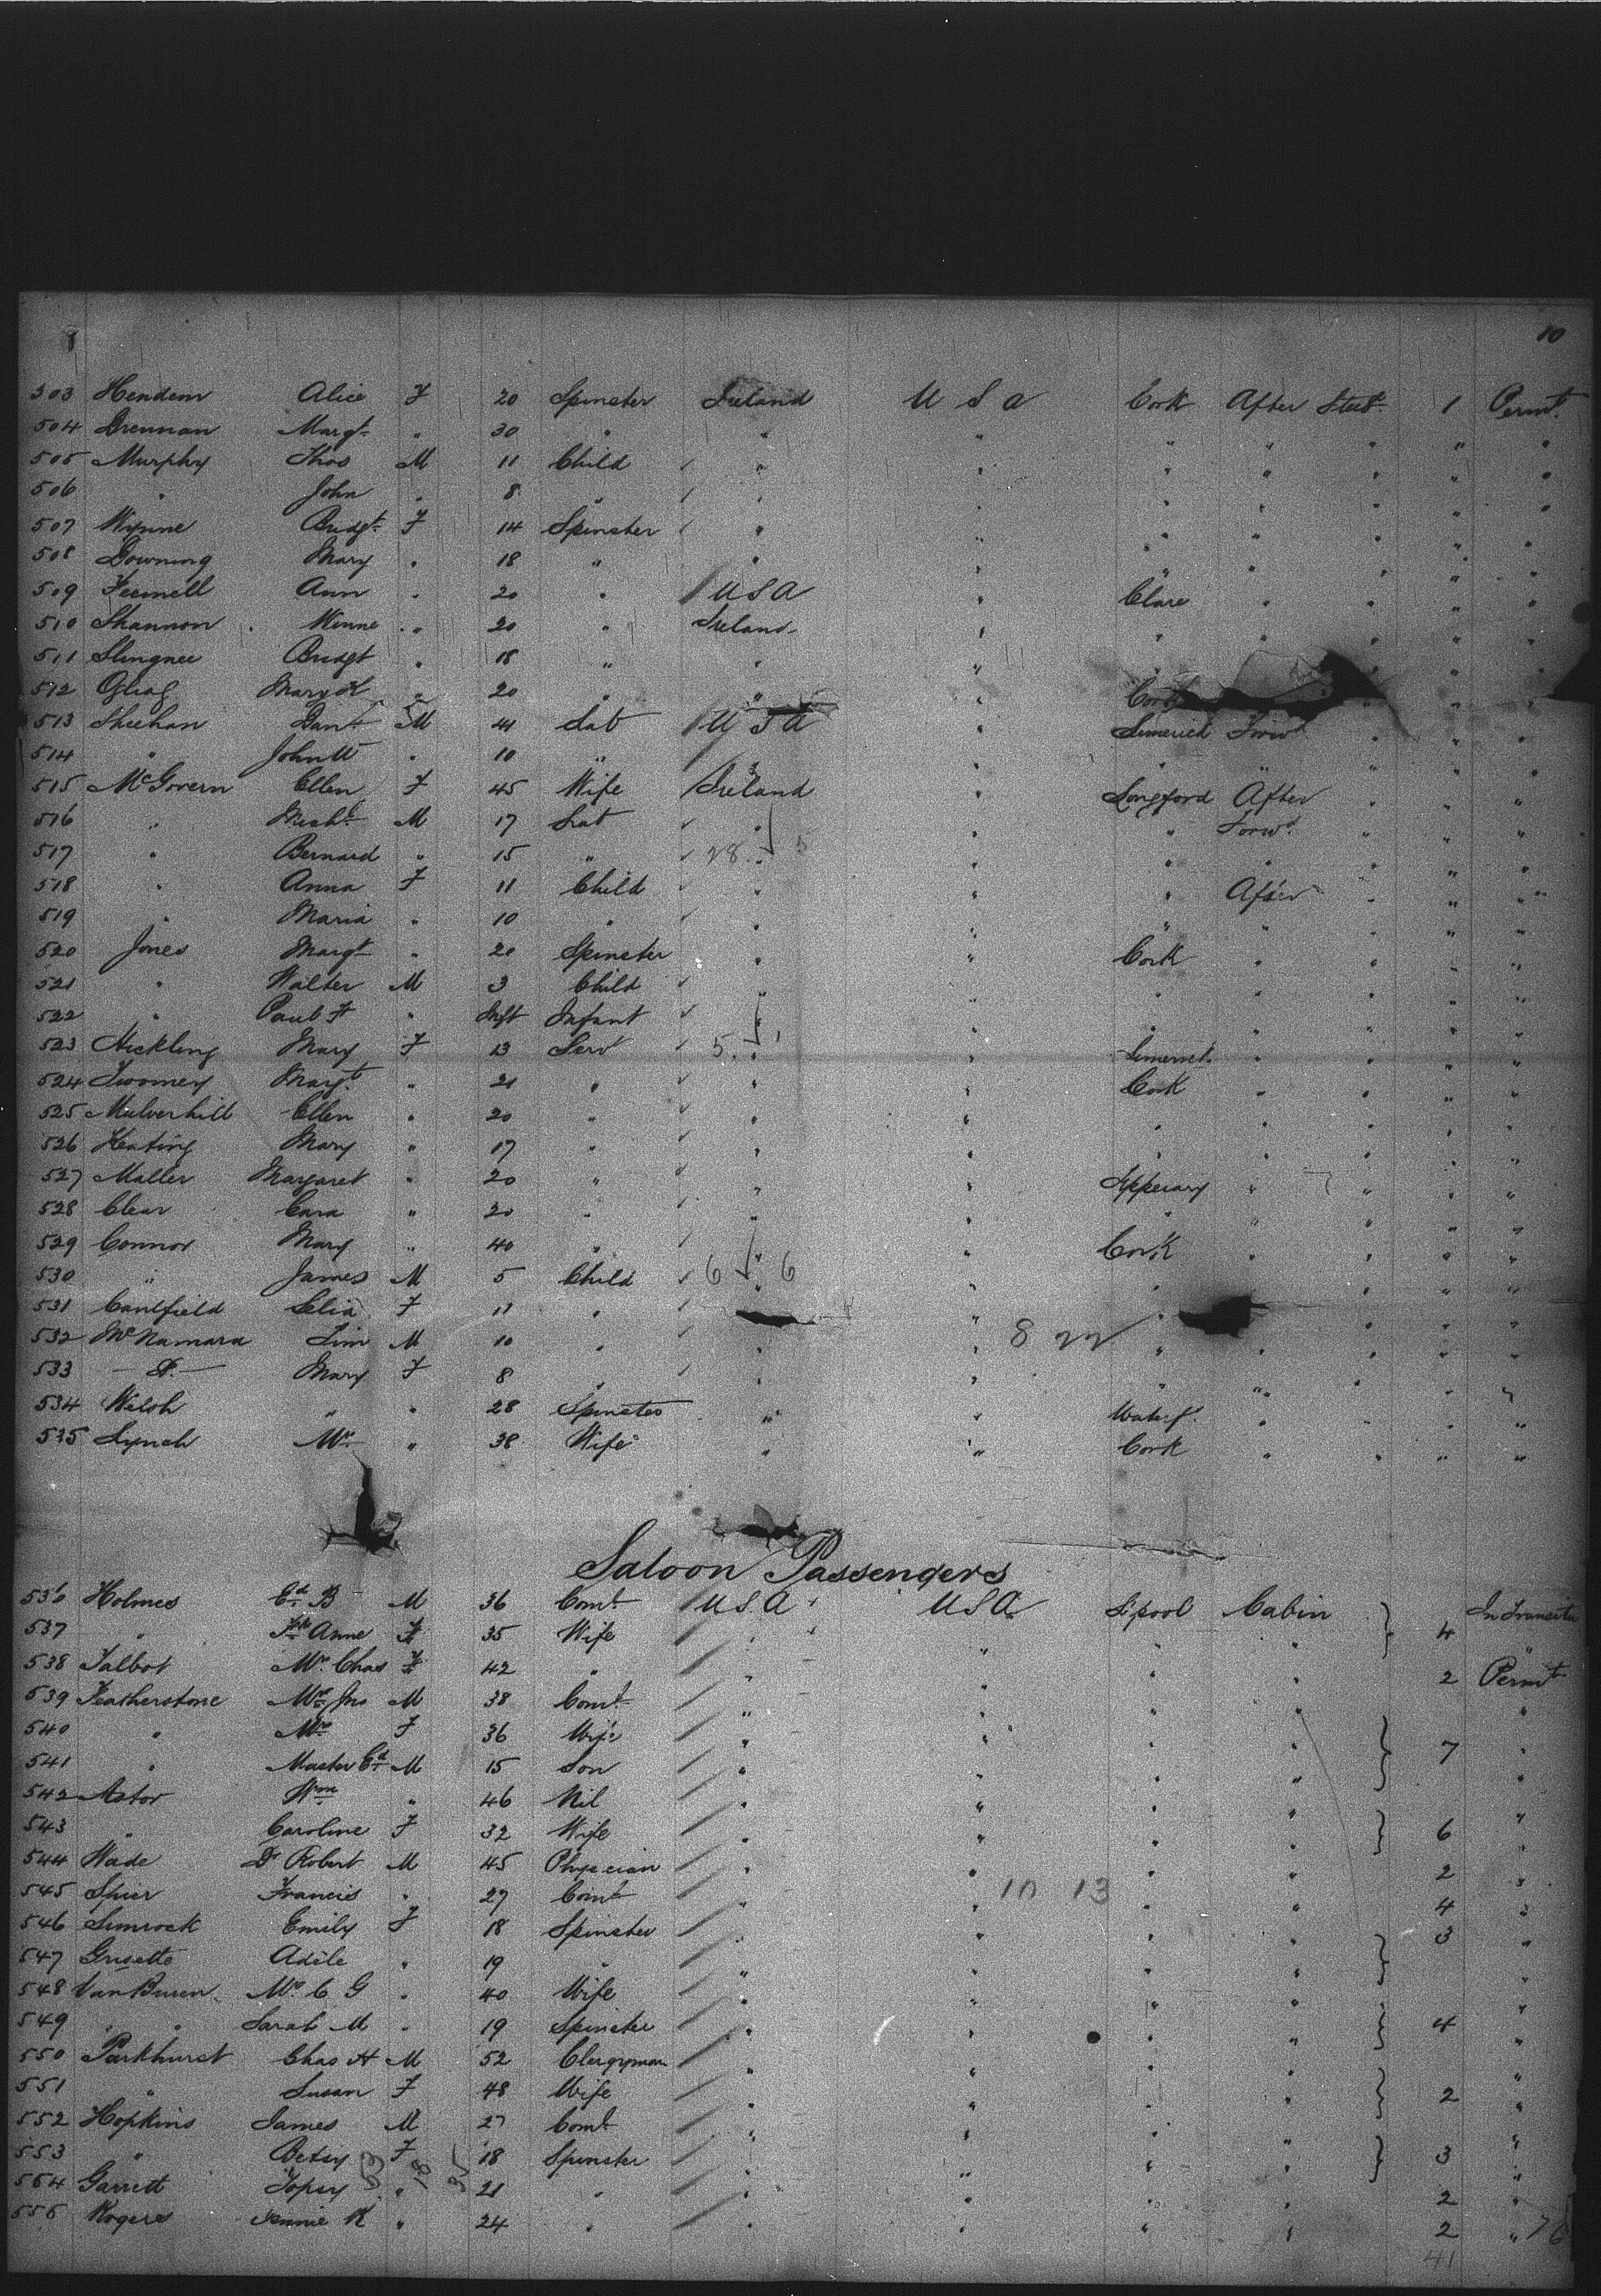 10
503 Hendem Alice F 20 Spinster Ireland U S A Cork After Steer. 1 Permt.
504 Drennan Margt " 30 " " " " " " " "
505 Murphy Thos M 11 Child " " " " " " "
506 " John " 8 " " " " " " " "
507 Wynne Bridgt F 14 Spinster " " " " " " "
508 Downing Mary " 18 " " " " " " " "
509 Fennell Ann " 20 " U S A " Clare " " " "
510 Shannon Winne " 20 " Ireland " " " " " "
511 Slingnee Bridgt " 18 " " " " " " " "
512 Mary " 20 " " " Cork " " "
513 Sheehan Danl M 41 Lab U S A " Limerick Forwd " " "
514 " John W " 10 " " " " " " "
515 McGovern Ellen F 45 Wife Ireland " Longford After " " "
516 " Michl M 17 Lab " " " Forwd " " "
517 " Bernard " 15 " 28 " 5 " " " " " "
518 " Anna F 11 Child " " " After " " "
519 " Maria " 10 " " " " " " " "
520 Jones Margt " 20 Spinster " " Cork " " " "
521 " Walter M 3 Child " " " " " " "
522 " Paul F " Inft Infant " " " " " " "
523 Hickling Mary F 13 Serv 5 " 1 " " " " "
524 Twomey Margt " 21 " " " Cork " " " "
525 Mulverhill Ellen " 20 " " " " " " " "
526 Keating Mary " 17 " " " " " " " "
527 Maller Margaret " 20 " " " Tipperary " " " "
528 Clear Cara " 20 " " " " " " " "
529 Connor Mary " 40 " " " Cork " " " "
530 " James M 5 Child 6 " 6 " " " " " "
531 Caulfield Celia F 11 " " " " " " "
532 McNamara Tim M 10 " " " 8 22 " " " " "
533 — D. — Mary F 8 " " " " " " " "
534 Welsh " " 28 Spinster " " Waterf. " " " "
535 Lynch Mrs " 38 Wife " " Cork " " " "
Saloon Passengers
536 Holmes Ed B M 36 Comt U.S.A U S A L'pool Cabin } In Transitu
537 " Anne F 35 Wife " " " " 4 "
538 Talbot Mrs Chas F 42 " " " " " 2 Permt
539 Featherstone Mr Jno M 38 Comt " " " " "
540 " Mrs F 36 Wife " " " " } 7 "
541 " Master Ed M 15 Son " " " " "
542 Astor Wm " 46 Nil " " " " "
543 " Caroline F 32 Wife " " " " } 6 "
544 Wade Dr Robert M 45 Physician " " " " 2 "
545 Spier Francis " 27 Comt " " 10 13 " " 4 "
546 Simrock Emily F 18 Spinster " " " " 3 "
547 Grisette Adèle " 19 " " " " " } "
548 Van Buren Mrs C G " 40 Wife " " " " "
549 " " Sarah M " 19 Spinster " " " " } 4 "
550 Parkhurst Chas H M 52 Clergyman " " " " "
551 " Susan F 48 Wife " " " " } 2 "
552 Hopkins James M 27 Comt " " " " "
553 " Betsy F 18 Spinster " " " " } 3 "
554 Garrett Topsy " 21 " " " " " 2 "
555 Rogers Jennie K " 24 " " " " " 2 " 76
41